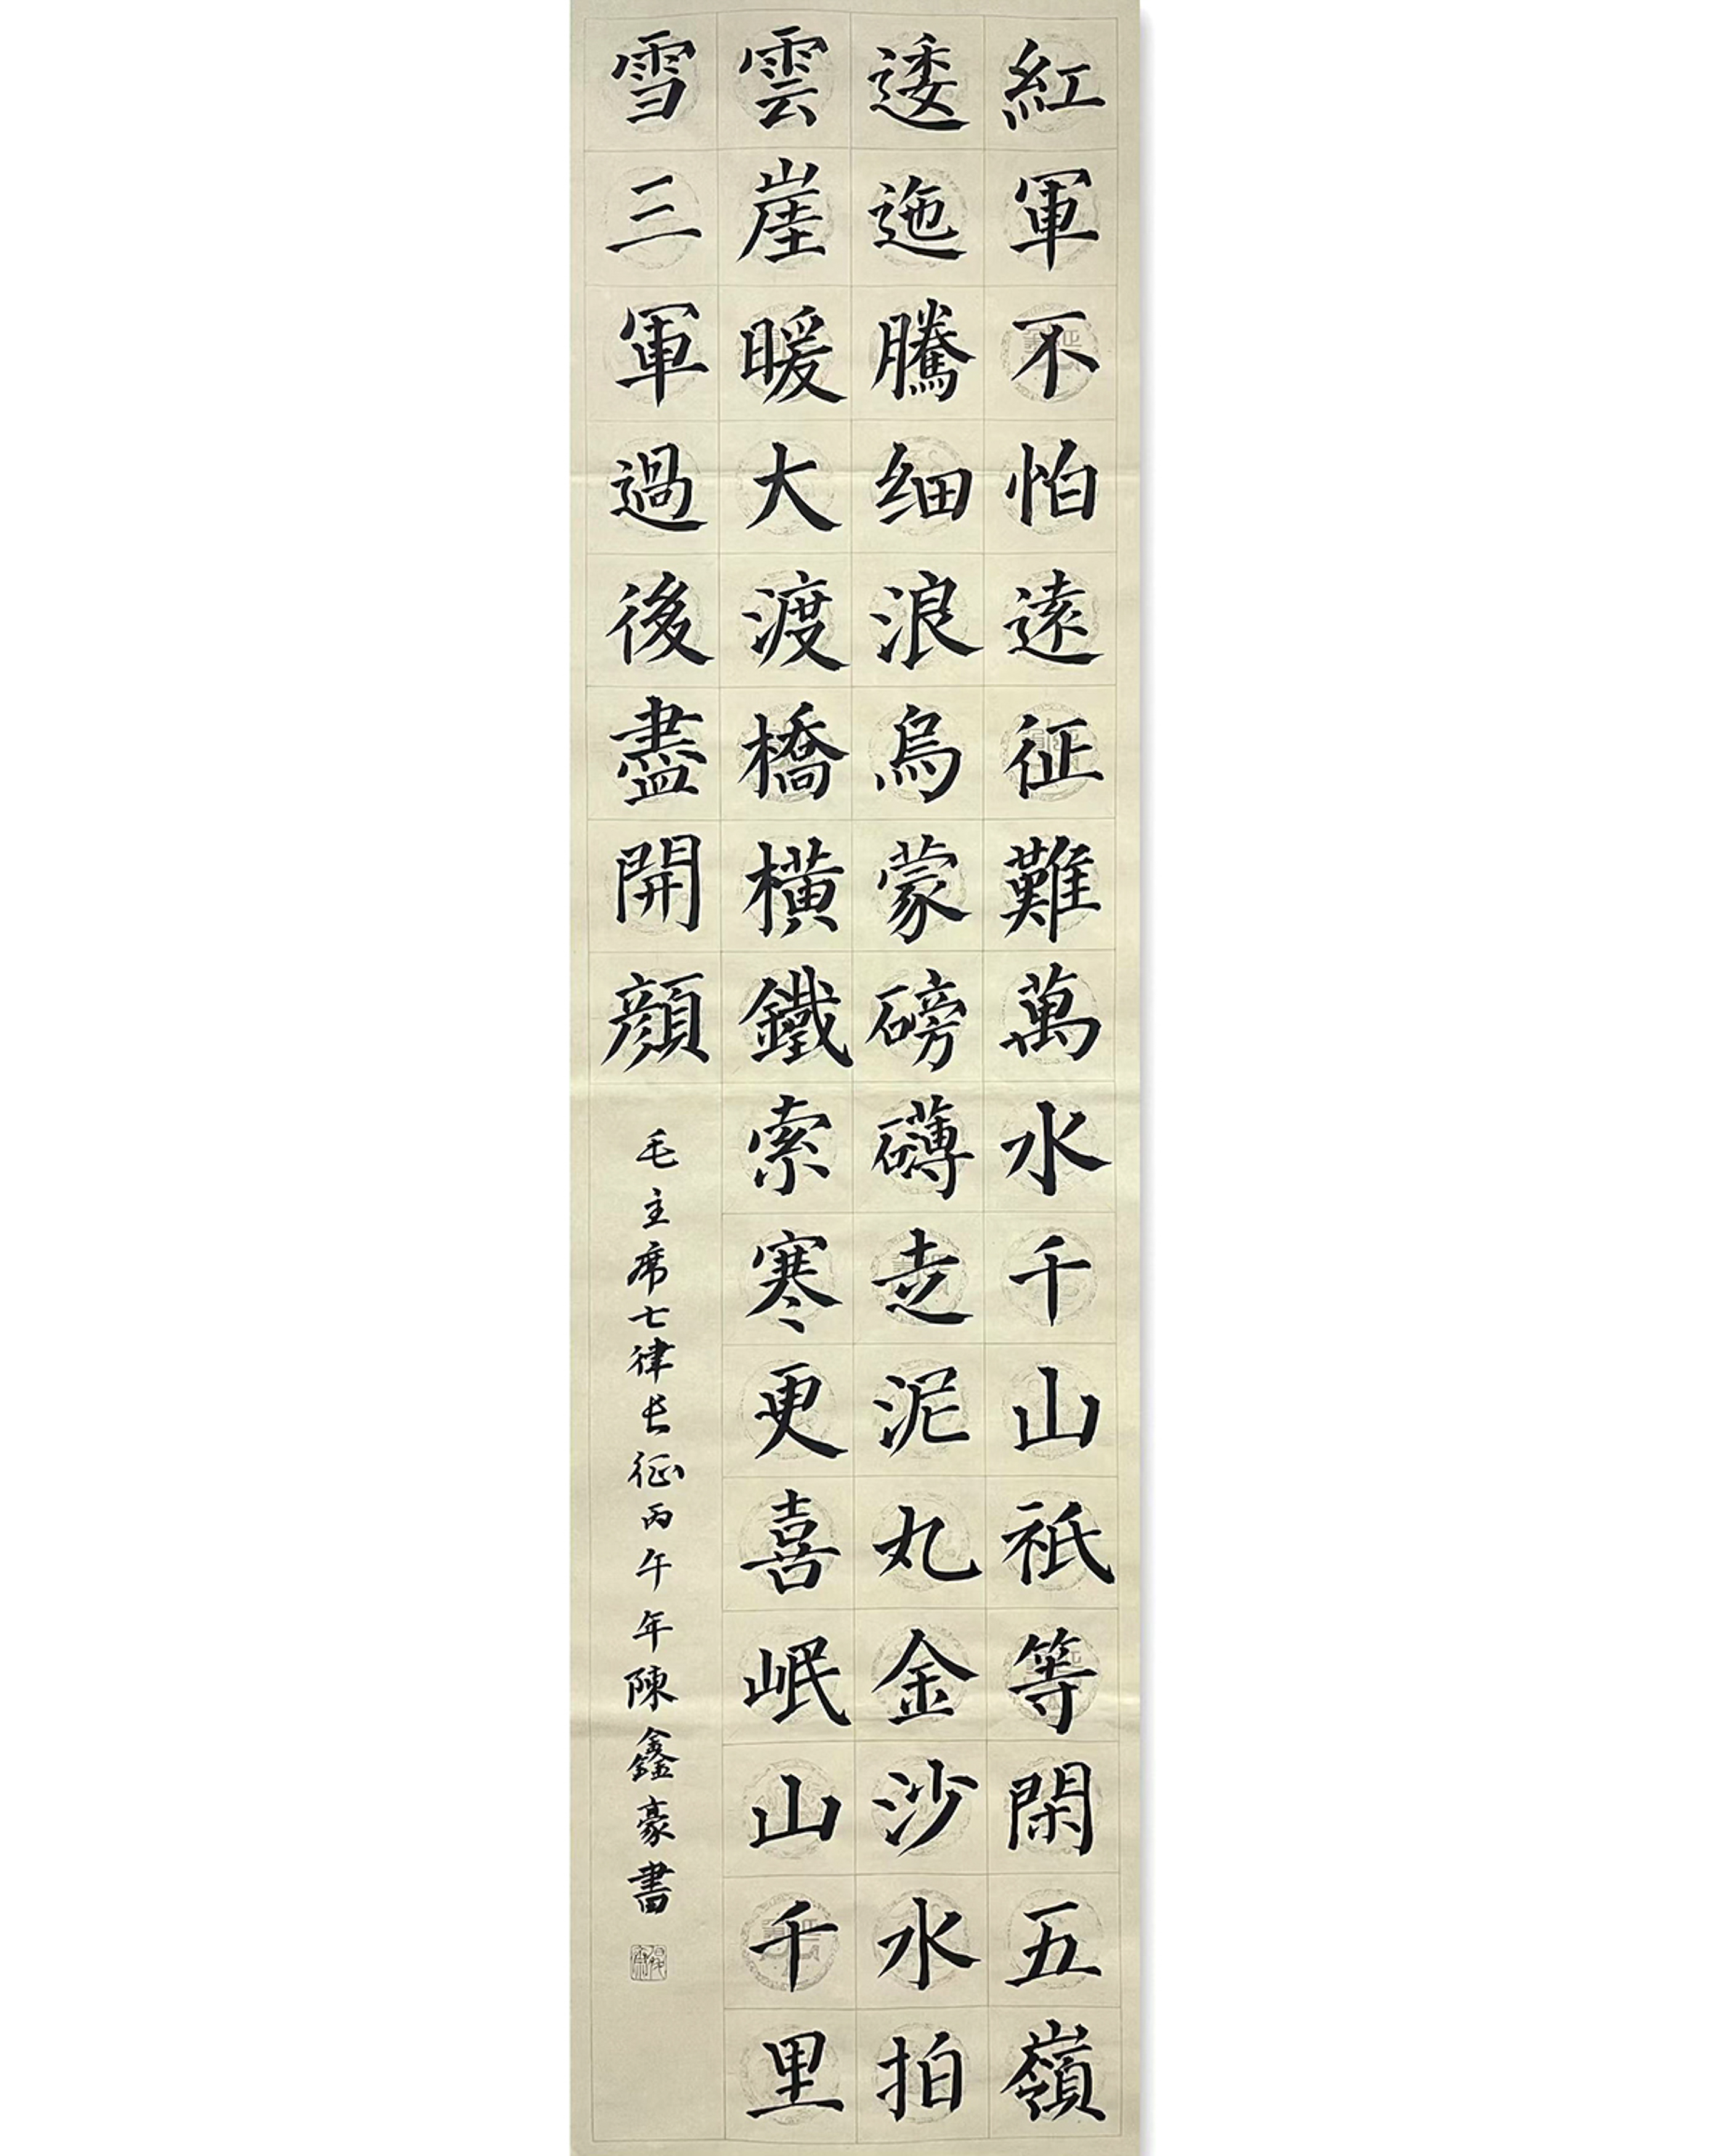 紅軍不怕遠征難萬水千山祇等閑五嶺
逶迤騰细浪烏蒙磅礴走泥丸金沙水拍
雲崖暖大渡橋橫鐵索寒更喜岷山千里
雪三軍過後盡開顔
毛主席七律长征丙午年陳鑫豪書